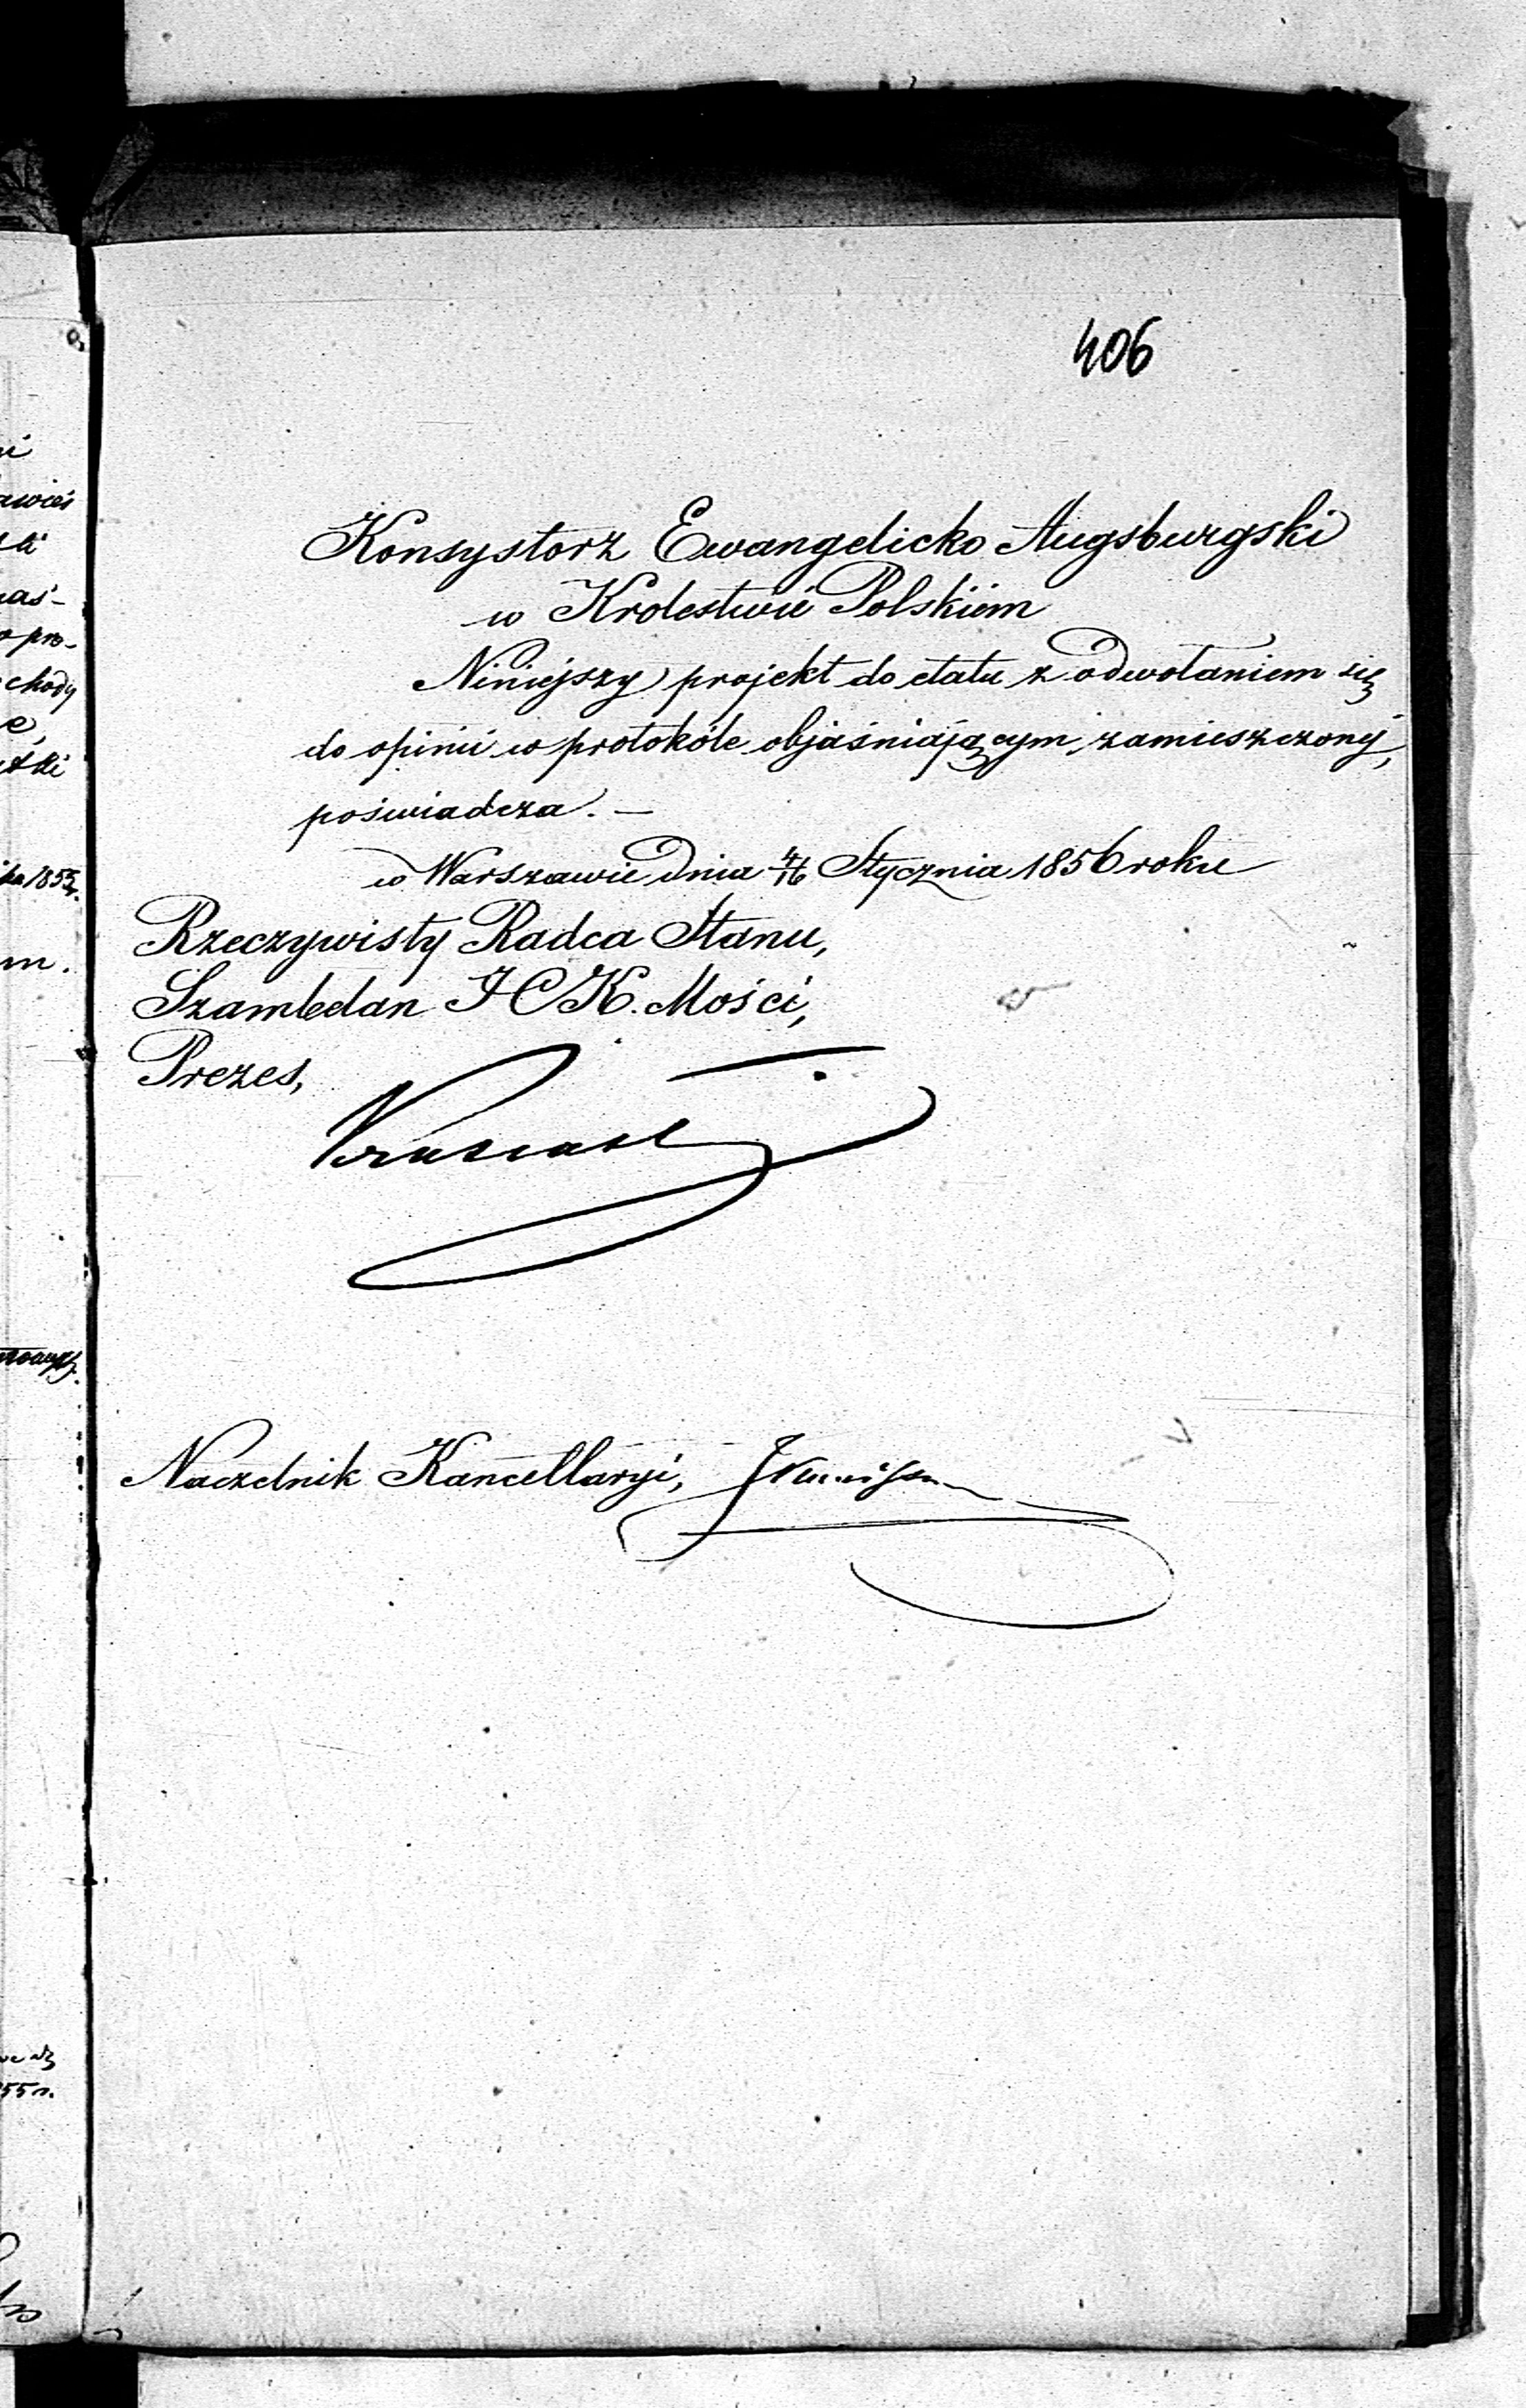 406
Konsystorz Ewangelicko Augsburgski
w Krolestwie Polskiem
Niniejszy projekt do etatu z odwołaniem się
do opinii w protokóle objaśniającym zamieszczonéj,
poświadcza. —
w Warszawie dnia 4/16 Stycznia 1856 roku
Rzeczywisty Radca Stanu,
Szambelan J C K. Mości,
Prezes,
Naczelnik Kancellaryi,